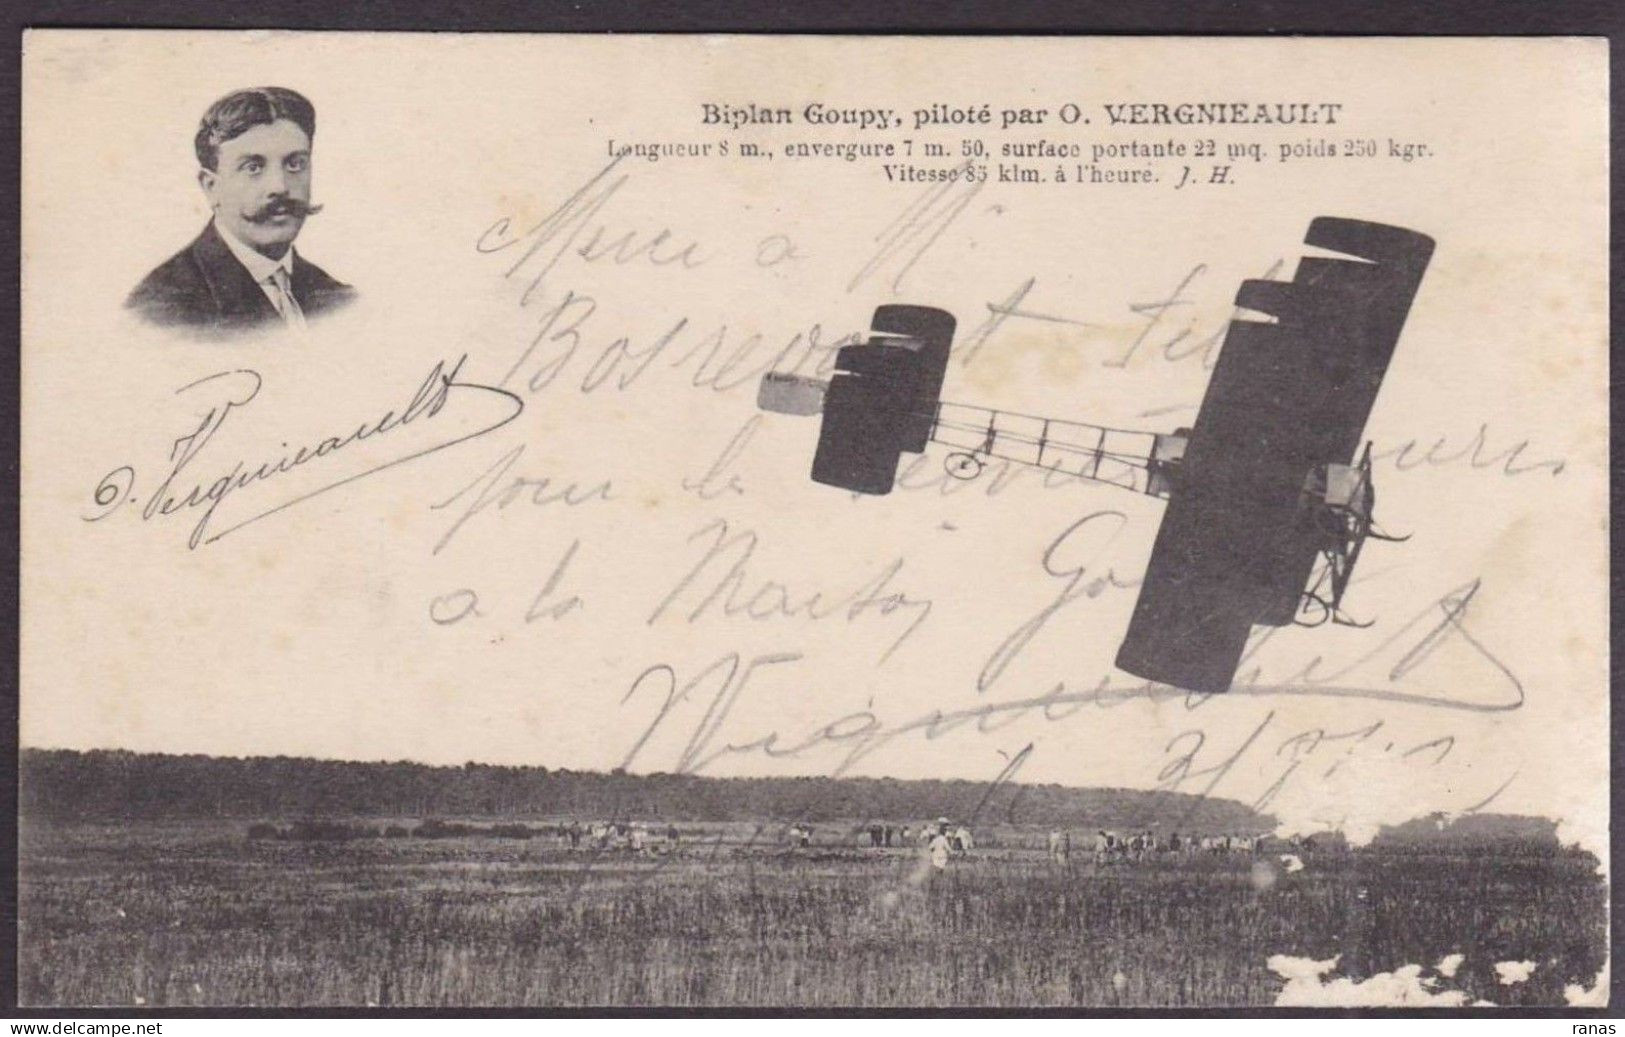 Biplan Goupy, piloté par O. VERGNIEAULT
Longueur 8 m., envergure 7 m. 50, surface portante 22 mq. poids 250 kgr.
Vitesse 85 klm. à l'heure. J. H.
Merci a M.
et
O. Vergnieault
pour le
a la Maison
Vergnieault
www.delcampe.net
ranas